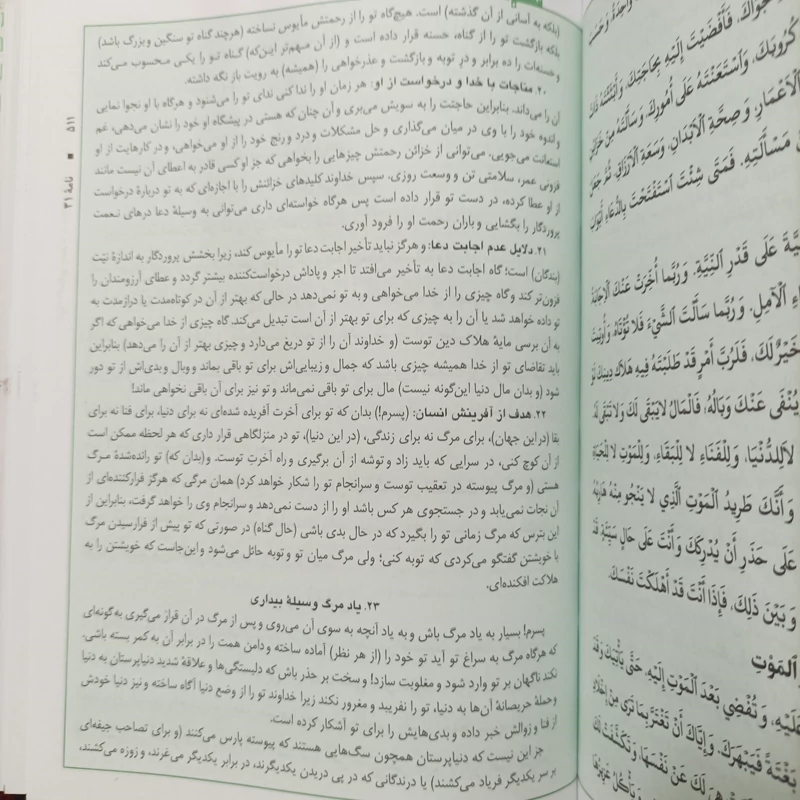 (بلکه به آسانی از آن گذشته) است. هیچ‌گاه تو را از رحمتش مأیوس نساخته (هرچند گناه تو سنگین و بزرگ باشد)
بلکه بازگشت تو را از گناه، حسنه قرار داده است و (از آن مهم‌تر این‌که) گناه تو را یکی محسوب می‌کند
و حسنات را ده برابر و در توبه و بازگشت و عذرخواهی را (همیشه) به رویت باز نگه داشته.
۲۰. مناجات با خدا و درخواست از او: هر زمان او را ندا کنی ندای تو را می‌شنود و هرگاه با او نجوا نمایی
آن را می‌داند. بنابراین حاجتت را به سویش می‌بری و آن چنان که هستی در پیشگاه او خود را نشان می‌دهی، غم
و اندوه خود را با وی در میان می‌گذاری و حل مشکلات و درد و رنج خود را از او می‌خواهی، و در کارهایت از او
استعانت می‌جویی. می‌توانی از خزائن رحمتش چیزهایی را بخواهی که جز او کسی قادر به اعطای آن نیست مانند
فزونی عمر، سلامتی تن و وسعت روزی. سپس خداوند کلیدهای خزائنش را با اجازه‌ای که به تو دربارهٔ درخواست
از او عطا کرده، در دست تو قرار داده است پس هرگاه خواسته‌ای داری می‌توانی به وسیلهٔ دعا درهای نعمت
پروردگار را بگشایی و باران رحمت او را فرود آوری.
۲۱. دلایل عدم اجابت دعا: و هرگز نباید تأخیر اجابت دعا تو را مأیوس کند، زیرا بخشش پروردگار به اندازهٔ نیّت
(بندگان) است؛ گاه اجابت دعا به تأخیر می‌افتد تا اجر و پاداش درخواست‌کننده بیشتر گردد و عطای آرزومندان را
فزون‌تر کند و گاه چیزی را از خدا می‌خواهی و به تو نمی‌دهد در حالی که بهتر از آن در کوتاه‌مدت یا درازمدت به
تو داده خواهد شد یا آن را به چیزی که برای تو بهتر از آن است تبدیل می‌کند. گاه چیزی از خدا می‌خواهی که اگر
به آن برسی مایهٔ هلاک دین توست (و خداوند آن را از تو دریغ می‌دارد و چیزی بهتر از آن را می‌دهد) بنابراین
باید تقاضای تو از خدا همیشه چیزی باشد که جمال و زیبایی‌اش برای تو باقی بماند و وبال و بدی‌اش از تو دور
شود (و بدان مال دنیا این‌گونه نیست) مال برای تو باقی نمی‌ماند و تو نیز برای آن باقی نخواهی ماند!
۲۲. هدف از آفرینش انسان: (پسرم!) بدان که تو برای آخرت آفریده شده‌ای نه برای دنیا، برای فنا نه برای
بقا (در این جهان)، برای مرگ نه برای زندگی، (در این دنیا)، تو در منزلگاهی قرار داری که هر لحظه ممکن است
از آن کوچ کنی، در سرایی که باید زاد و توشه از آن برگیری و راه آخرت توست. و (بدان که) تو رانده‌شدهٔ مرگ
هستی (و مرگ پیوسته در تعقیب توست و سرانجام تو را شکار خواهد کرد) همان مرگی که هرگز فرارکننده‌ای از
آن نجات نمی‌یابد و در جستجوی هر کس باشد او را از دست نمی‌دهد و سرانجام وی را خواهد گرفت، بنابراین از
این بترس که مرگ زمانی تو را بگیرد که در حال بدی باشی (حال گناه) در صورتی که تو پیش از فرارسیدن مرگ
با خویشتن گفتگو می‌کردی که توبه کنی؛ ولی مرگ میان تو و توبه حائل می‌شود و این‌جاست که خویشتن را به
هلاکت افکنده‌ای.
۲۳. یاد مرگ وسیلهٔ بیداری
پسرم! بسیار به یاد مرگ باش و به یاد آنچه به سوی آن می‌روی و پس از مرگ در آن قرار می‌گیری به‌گونه‌ای
که هرگاه مرگ به سراغ تو آید تو خود را (از هر نظر) آماده ساخته و دامن همت را در برابر آن به کمر بسته باشی.
نکند ناگهان بر تو وارد شود و مغلوبت سازد! و سخت بر حذر باش که دلبستگی‌ها و علاقهٔ شدید دنیاپرستان به دنیا
و حملهٔ حریصانهٔ آن‌ها به دنیا، تو را نفریبد و مغرور نکند زیرا خداوند تو را از وضع دنیا آگاه ساخته و نیز دنیا خودش
از فنا و زوالش خبر داده و بدی‌هایش را برای تو آشکار کرده است.
جز این نیست که دنیاپرستان همچون سگ‌هایی هستند که پیوسته پارس می‌کنند (و برای تصاحب جیفه‌ای
بر سر یکدیگر فریاد می‌کشند) یا درندگانی که در پی دریدن یکدیگرند، در برابر یکدیگر می‌غرند، و زوزه می‌کشند،
نامهٔ ۳۱ ■ ۵۱۱
فَأَفْضَيْتَ إِلَيْهِ بِحَاجَتِكَ،
كُرُوبَكَ، وَاسْتَعَنْتَهُ عَلَى أُمُورِكَ، وَسَأَلْتَهُ مِنْ
الْأَعْمَارِ، وَصِحَّةِ الْأَبْدَانِ، وَسَعَةِ الْأَرْزَاقِ. ثُمَّ جَعَلَ
مَسْأَلَتِهِ. فَمَتَى شِئْتَ اسْتَفْتَحْتَ بِالدُّعَاءِ أَبْوَابَ
عَلَى قَدْرِ النِّيَّةِ. وَرُبَّمَا أُخِّرَتْ عَنْكَ الْإِجَابَةُ
الْآمِلِ. وَرُبَّمَا سَأَلْتَ الشَّيْءَ فَلَا تُؤْتَاهُ، وَأُوتِيتَ
خَيْرٌ لَكَ، فَلَرُبَّ أَمْرٍ قَدْ طَلَبْتَهُ فِيهِ هَلَاكُ دِينِكَ لَوْ
يُنْفَى عَنْكَ وَبَالُهُ؛ فَالْمَالُ لَا يَبْقَى لَكَ وَلَا تَبْقَى لَهُ
لَا لِلدُّنْيَا، وَلِلْفَنَاءِ لَا لِلْبَقَاءِ، وَلِلْمَوْتِ لَا لِلْحَيَاةِ
وَأَنَّكَ طَرِيدُ الْمَوْتِ الَّذِي لَا يَنْجُو مِنْهُ هَارِبُهُ
عَلَى حَذَرِ أَنْ يُدْرِكَكَ وَأَنْتَ عَلَى حَالٍ سَيِّئَةٍ، قَدْ
وَبَيْنَ ذَلِكَ، فَإِذَا أَنْتَ قَدْ أَهْلَكْتَ نَفْسَكَ.
الْمَوْتِ
عَلَيْهِ، وَتُفْضِي بَعْدَ الْمَوْتِ إِلَيْهِ، حَتَّى يَأْتِيَكَ وَقَدْ
بَغْتَةً فَيَبْهَرَكَ. وَإِيَّاكَ أَنْ تَغْتَرَّ بِمَا تَرَى مِنْ إِخْلَادِ
لَكَ عَنْ نَفْسِهَا، وَتَكَشَّفَتْ لَكَ